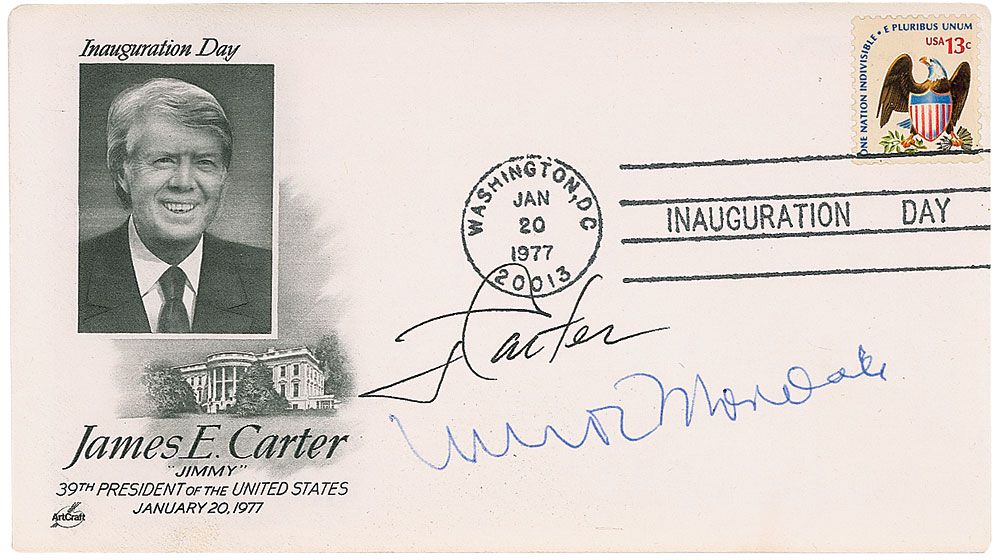 Inauguration Day
E PLURIBUS UNUM
ONE NATION INDIVISIBLE
USA 13c
WASHINGTON, DC
JAN
20
1977
20013
INAUGURATION DAY
J Carter
Walter Mondale
James E. Carter
"JIMMY"
39TH PRESIDENT OF THE UNITED STATES
JANUARY 20, 1977
ArtCraft